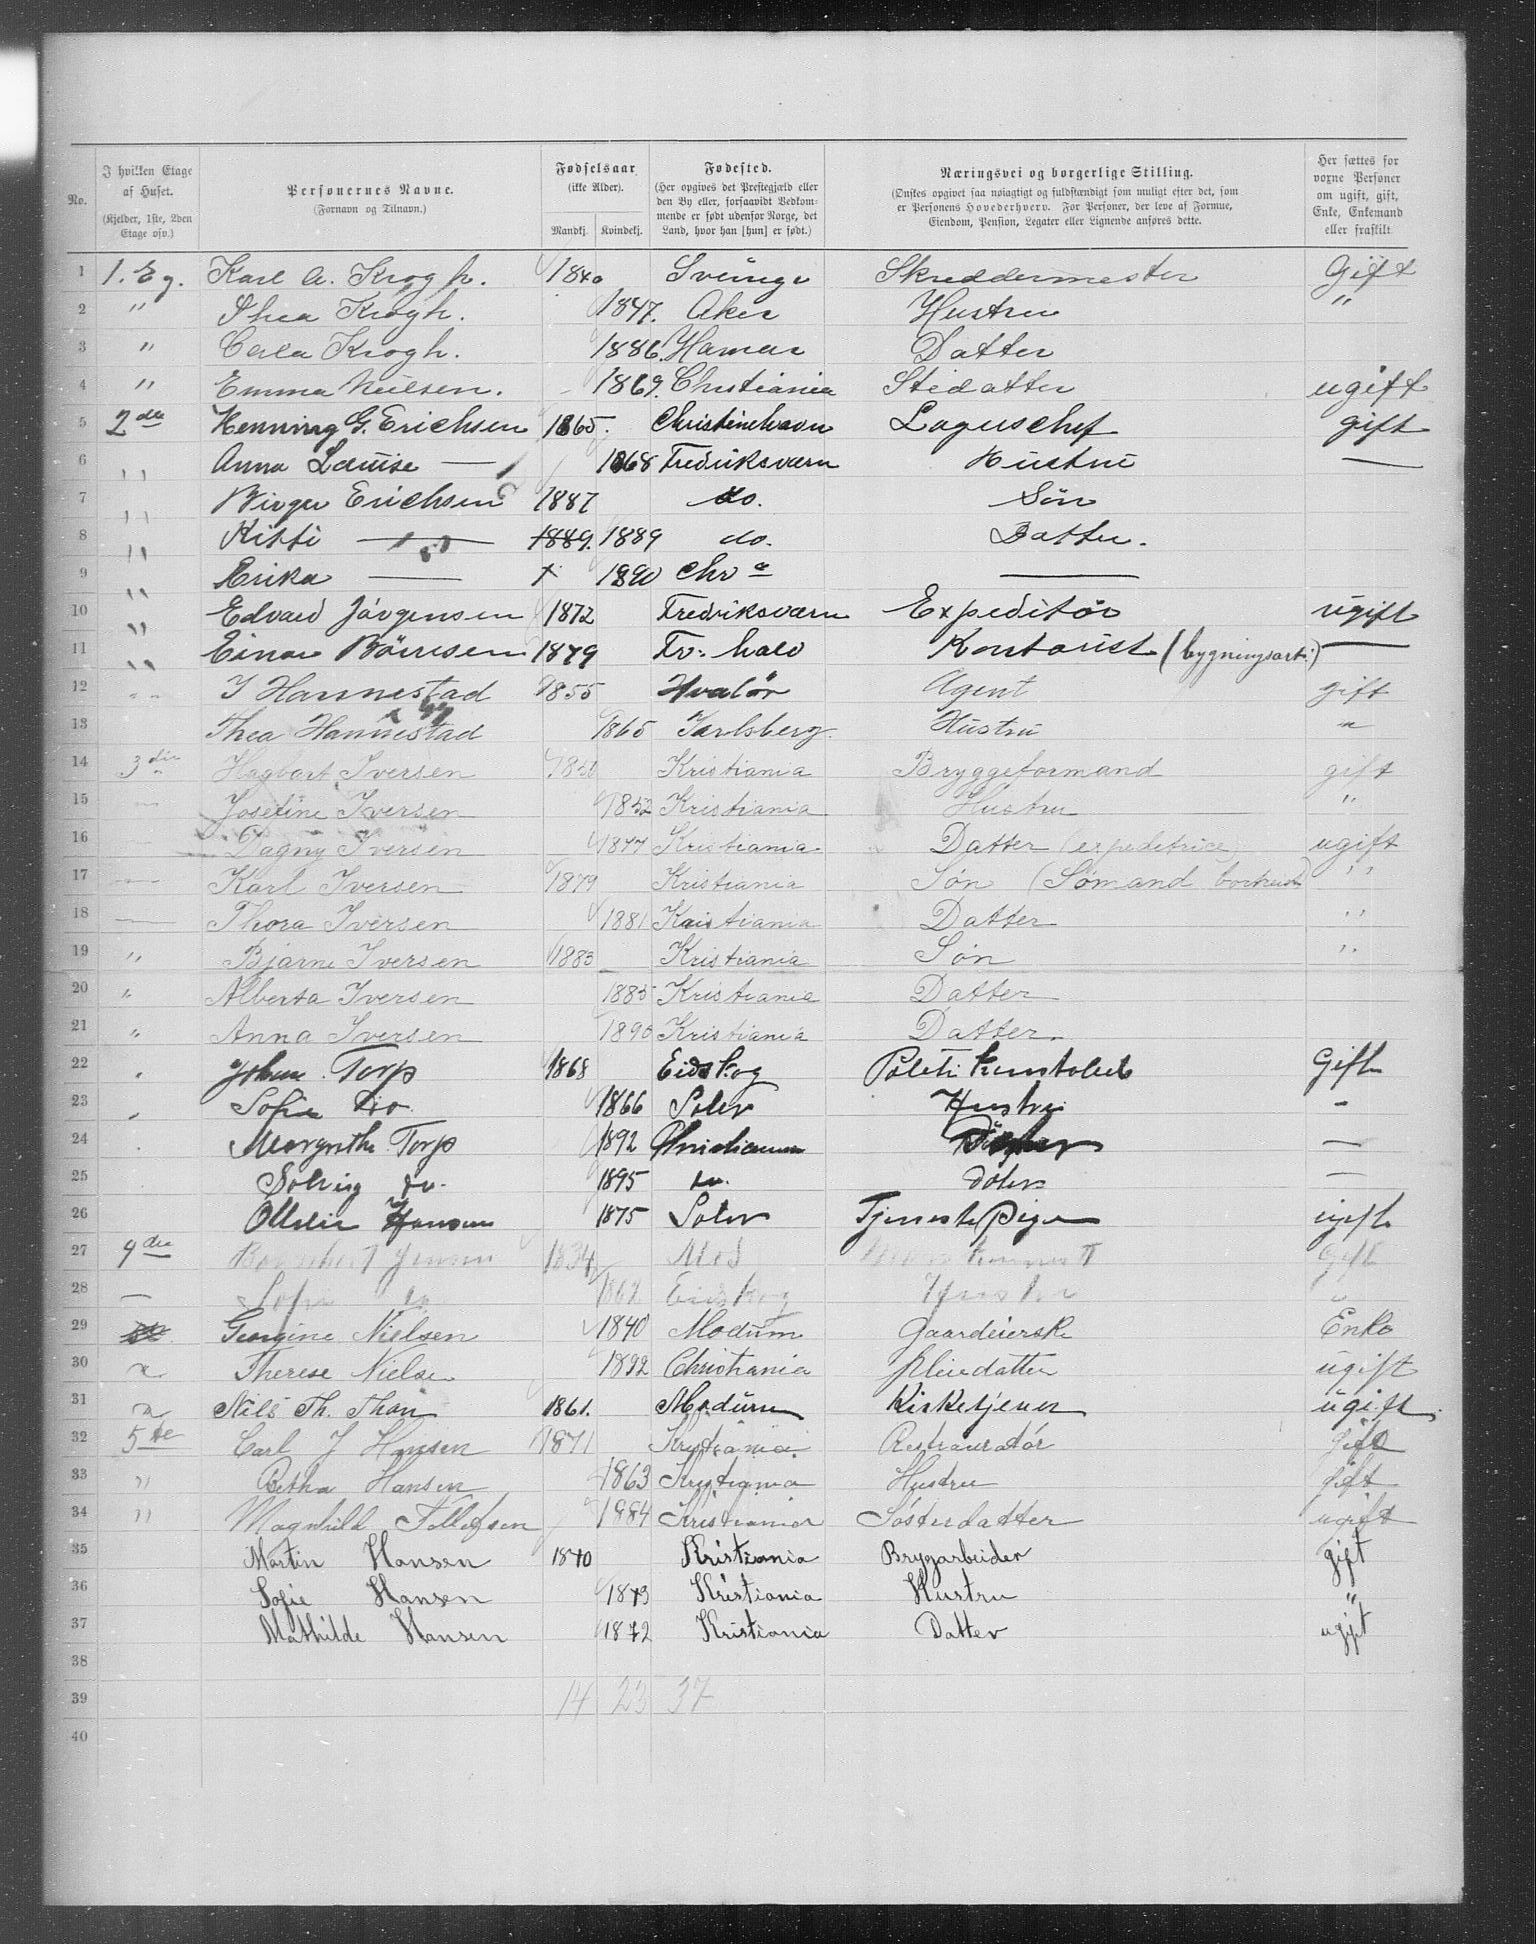 No. | I hvilken Etage af Huset. (Kjelder, 1ste, 2den Etage osv.) | Personernes Navne. (Fornavn og Tilnavn.) | Fødselsaar (ikke Alder). Mandkj. Kvindekj. | Fødested. (Her opgives det Prestegjæld eller den By eller, forsaavidt Vedkommende er født udenfor Norge, det Land, hvor han [hun] er født.) | Næringsvei og borgerlige Stilling. (Ønskes opgivet saa nøiagtigt og fuldstændigt som muligt efter det, som er Personens Hovederhverv. For Personer, der leve af Formue, Eiendom, Pension, Legater eller Lignende anføres dette.) | Her sættes for voxne Personer om ugift, gift, Enke, Enkemand eller fraskilt.
1 1. Eg. Karl A. Krogh. 1840 Sveinge Skreddermester Gift
2 " Thea Krogh. 1847. Aker Hustru "
3 " Carla Krogh. 1886. Hamar Datter
4 " Emma Nielsen. 1869. Christiania Stedatter ugift
5 2den Henning G. Erichsen 1865. Christinehavn Lagerchef gift
6 " Anna Louise — 1868 Fredriksværn Hustru —
7 " Birger Erichsen 1887 do. Søn
8 " Kitti — 1889. 1889 do. Datter.
9 " Erika — 1890 Chra —
10 " Edvard Jørgensen 1872 Fredriksværn Expeditør ugift
11 " Einar Börresen 1879 Fr. hald Kontorist (bygningsart.) —
12 " I Hannestad 1855 Hvalör Agent gift
13 Thea Hannestad 1865 Jarlsberg. Hustru "
14 3die Hagbart Iversen 1850 Kristiania Bryggeformand gift
15 — Josefine Iversen 1852 Kristiania Hustru "
16 — Dagny Iversen 1877 Kristiania Datter (expeditrice) ugift
17 — Karl Iversen 1879 Kristiania Søn (Sømand bortreist) "
18 — Thora Iversen 1881 Kristiania Datter "
19 " Bjarne Iversen 1883 Kristiania Søn "
20 " Alberta Iversen 1885 Kristiania Datter
21 " Anna Iversen 1890 Kristiania Datter.
22 " Johan Torp 1868 Eidskog Politi Gift
23 " Sofie do. 1866 Solør Hustru "
24 Margrethe Torp 1892 Christiania —
25 Solveig do. 1895 do. doter —
26 Hansen 1875 Solør Tjenestepige ugift
27 4de Jensen 1834 Gift
28 — Sofie do 1862 Eidskog Hustru "
29 Georgine Nielsen 1840 Modum Gaardeierske Enke
30 " Therese Nielsen 1892 Christiania Pleiedatter ugift
31 " Nils Th. Thon 1861. Modum Kirketjener ugift.
32 5te Carl J Hansen 1871 Kristiania Restauratör gift
33 " Betha Hansen 1863 Kristiania Hustru gift
34 " Magnhild Tollefsen 1884 Kristiania Søsterdatter ugift
35 Martin Hansen 1840 Kristiania Brygarbeider gift
36 Sofie Hansen 1843 Kristiania Hustru "
37 Mathilde Hansen 1872 Kristiania Datter ugift
38
39 14 23 37
40